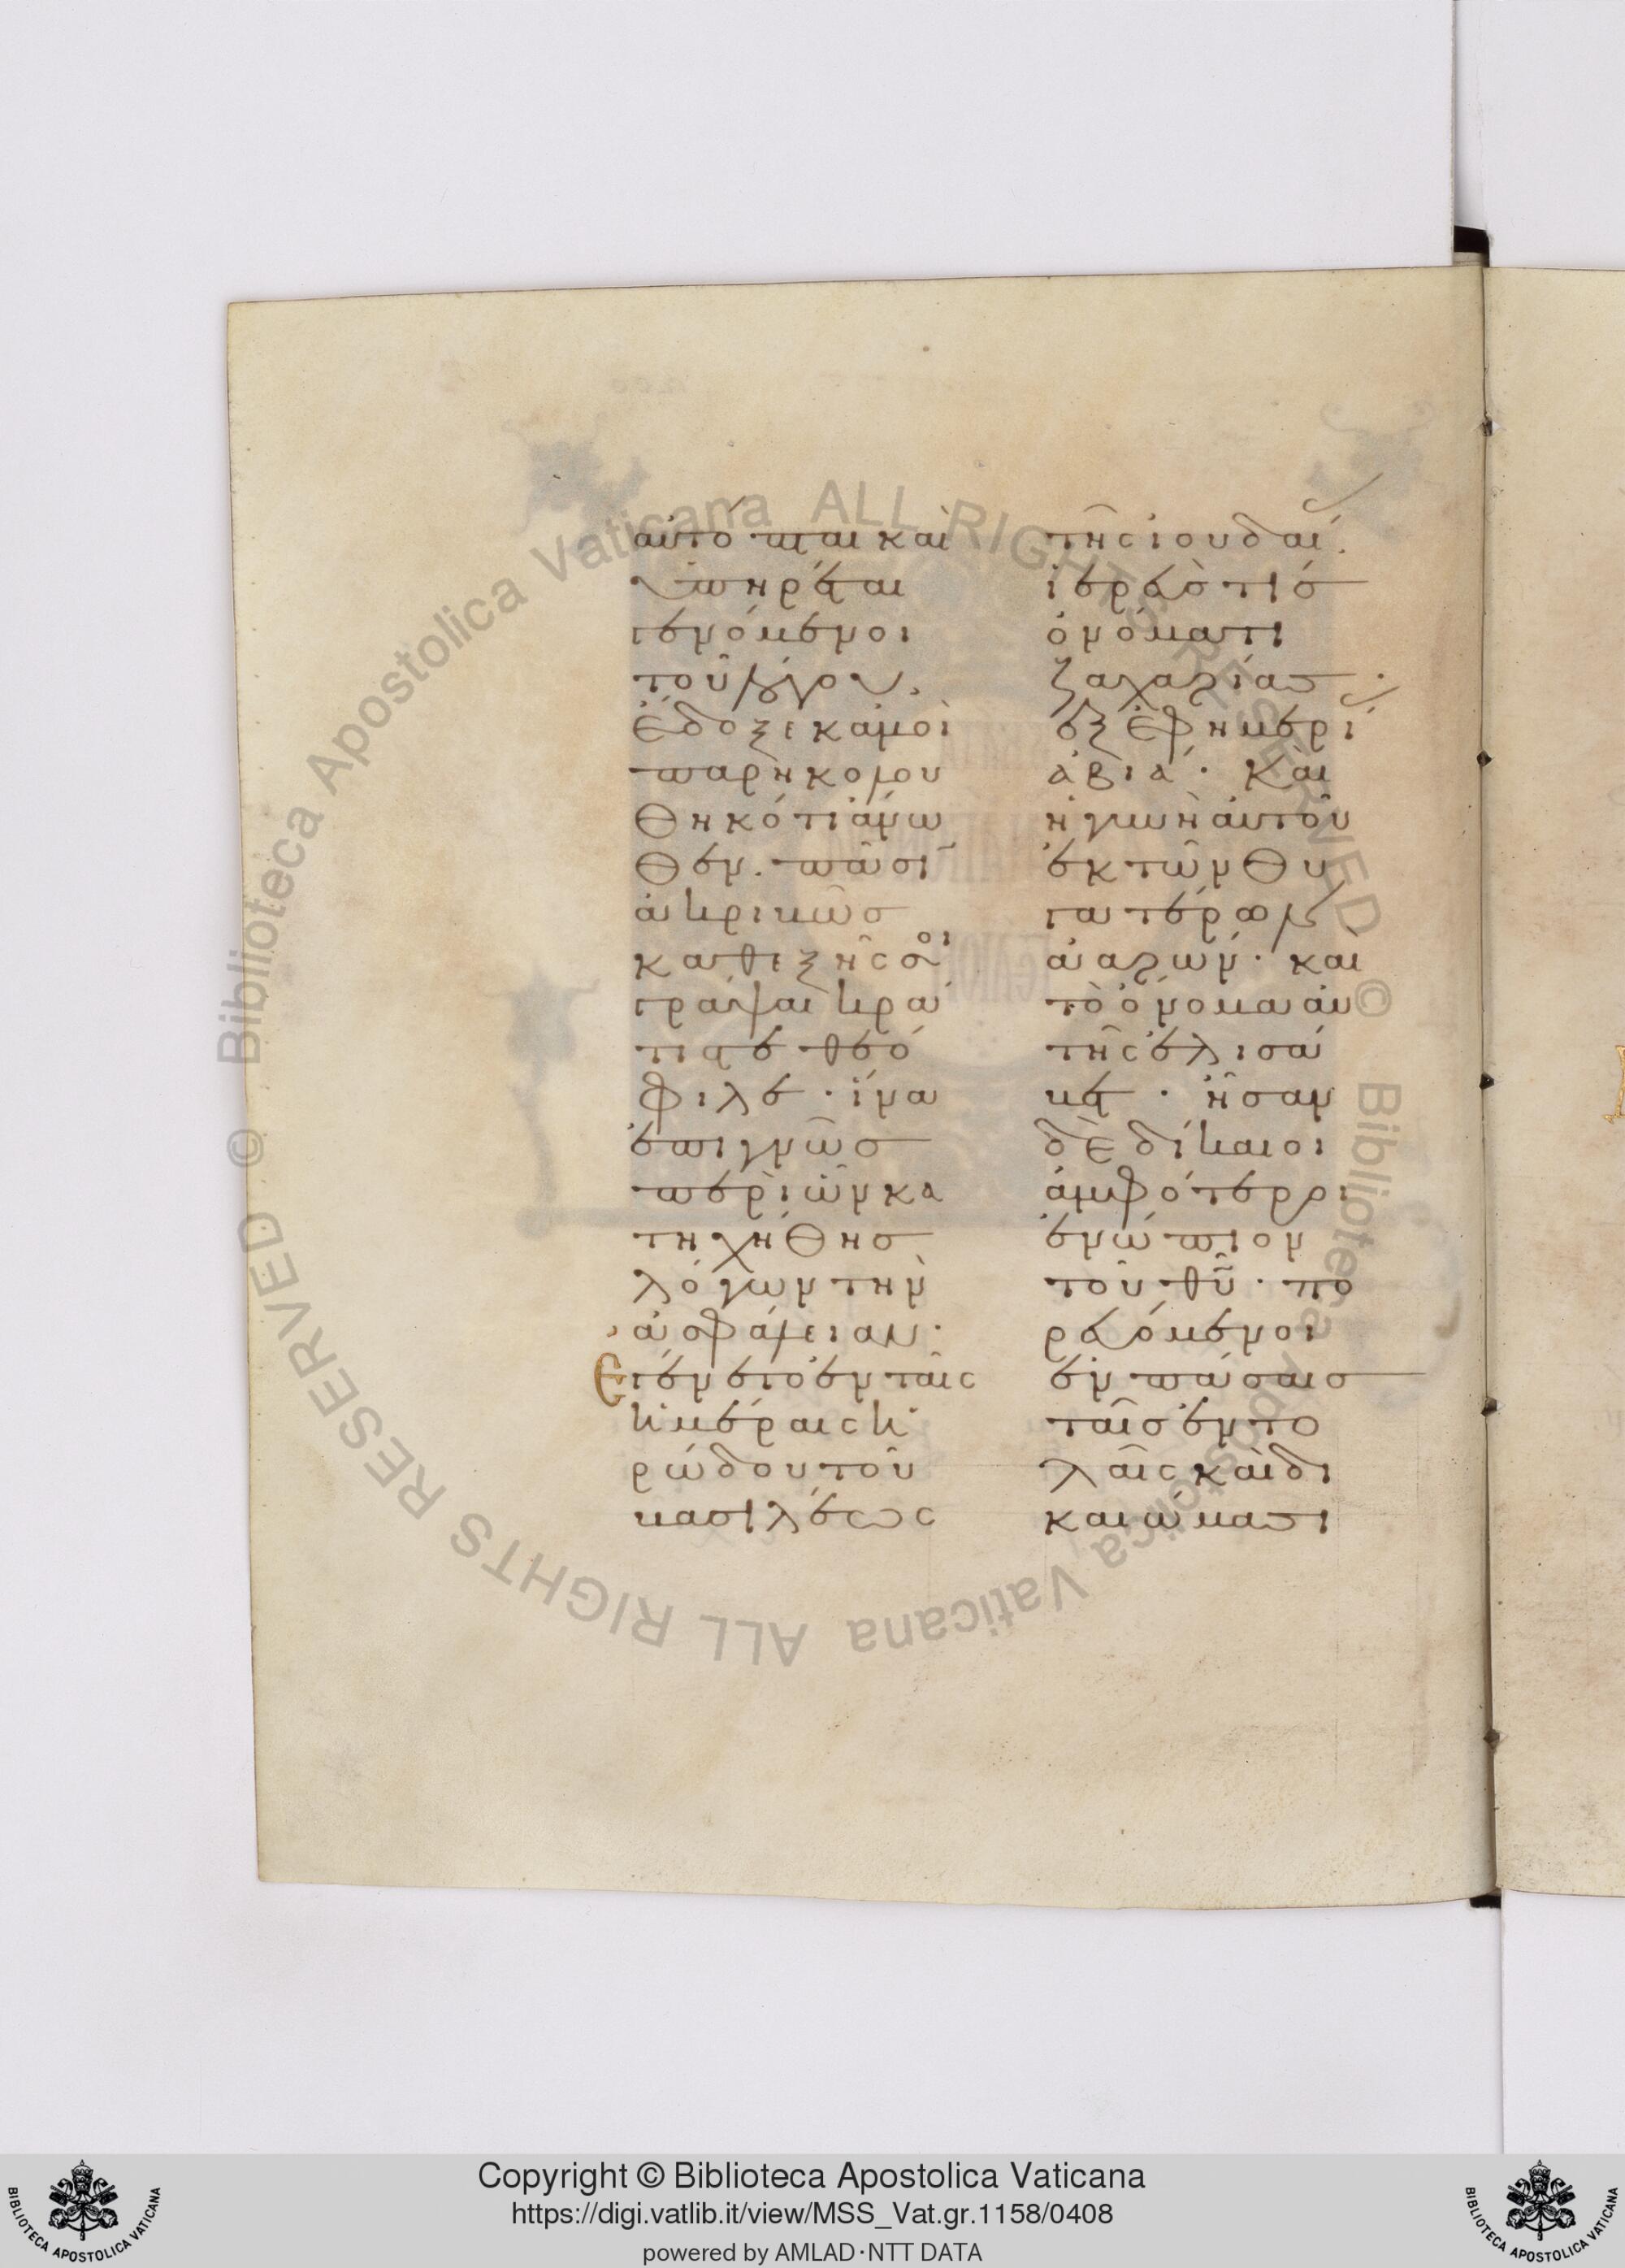 αὐτόπται καὶ
ὑπηρέται
γενόμενοι
τοῦ λόγου.
ἔδοξε κἀμοὶ
παρηκολου
θηκότι ἄνω
θεν. πᾶσῖ
ἀκριβῶσ
καθεξῆς σοι
γράψαι κρά
τιστε θεό
φιλε · ἵνα
ἐπιγνῶσ
περὶ ὧν κα
τηχήθησ
λόγων τὴν
ἀσφάλειαν ·
Ἐγένετο ἐν ταῖς
ἡμέραις ἡ
ρώδου τοῦ
βασιλέως
τῆς ἰουδαί.
ἱερεὺς τισ
ὀνόματι
ζαχαρίασ ·
ἐξ ἐφημερί
ἀβιά · Καὶ
ἡ γυνὴ αὐτοῦ
ἐκ τῶν θυ
γατέρων
ἀαρών · καὶ
τὸ ὄνομα αὐ
τῆς ἐλισά
βετ · ἦσαν
δὲ δίκαιοι
ἀμφότεροι
ἐνώπιον
τοῦ θῦ · πο
ρευόμενοι
ἐν πάσαισ
ταῖσ ἐντο
λαῖς καὶ δι
καιώμασι
Copyright © Biblioteca Apostolica Vaticana
https://digi.vatlib.it/view/MSS_Vat.gr.1158/0408
powered by AMLAD·NTT DATA
BIBLIOTECA APOSTOLICA VATICANA
BIBLIOTECA APOSTOLICA VATICANA
© Biblioteca Apostolica Vaticana ALL RIGHTS RESERVED © Biblioteca Apostolica Vaticana ALL RIGHTS RESERVED